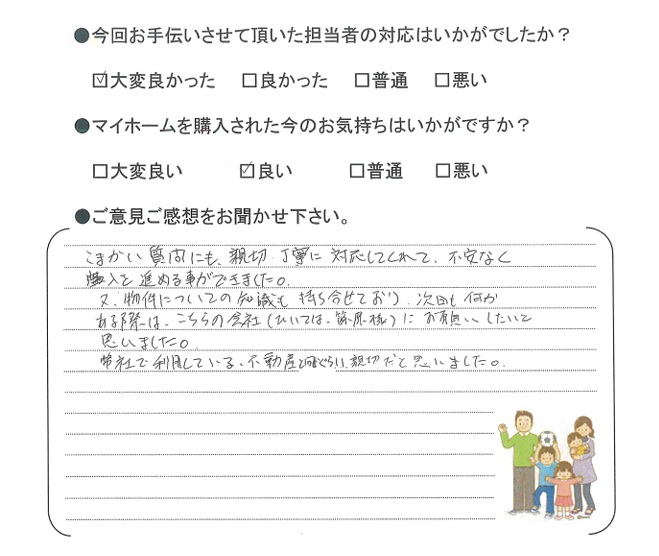 ●今回お手伝いさせて頂いた担当者の対応はいかがでしたか？
☑大変良かった　□良かった　□普通　□悪い
●マイホームを購入された今のお気持ちはいかがですか？
□大変良い　☑良い　□普通　□悪い
●ご意見ご感想をお聞かせ下さい。
こまかい質問にも、親切・丁寧に対応してくれて、不安なく
購入を進める事ができました。
又、物件についての知識も持ち合せており、次回も何か
ある際は、こちらの会社(ひいては、篠原様)にお願いしたいと
思いました。
弊社で利用している、不動産と同じぐらい、親切だと思いました。